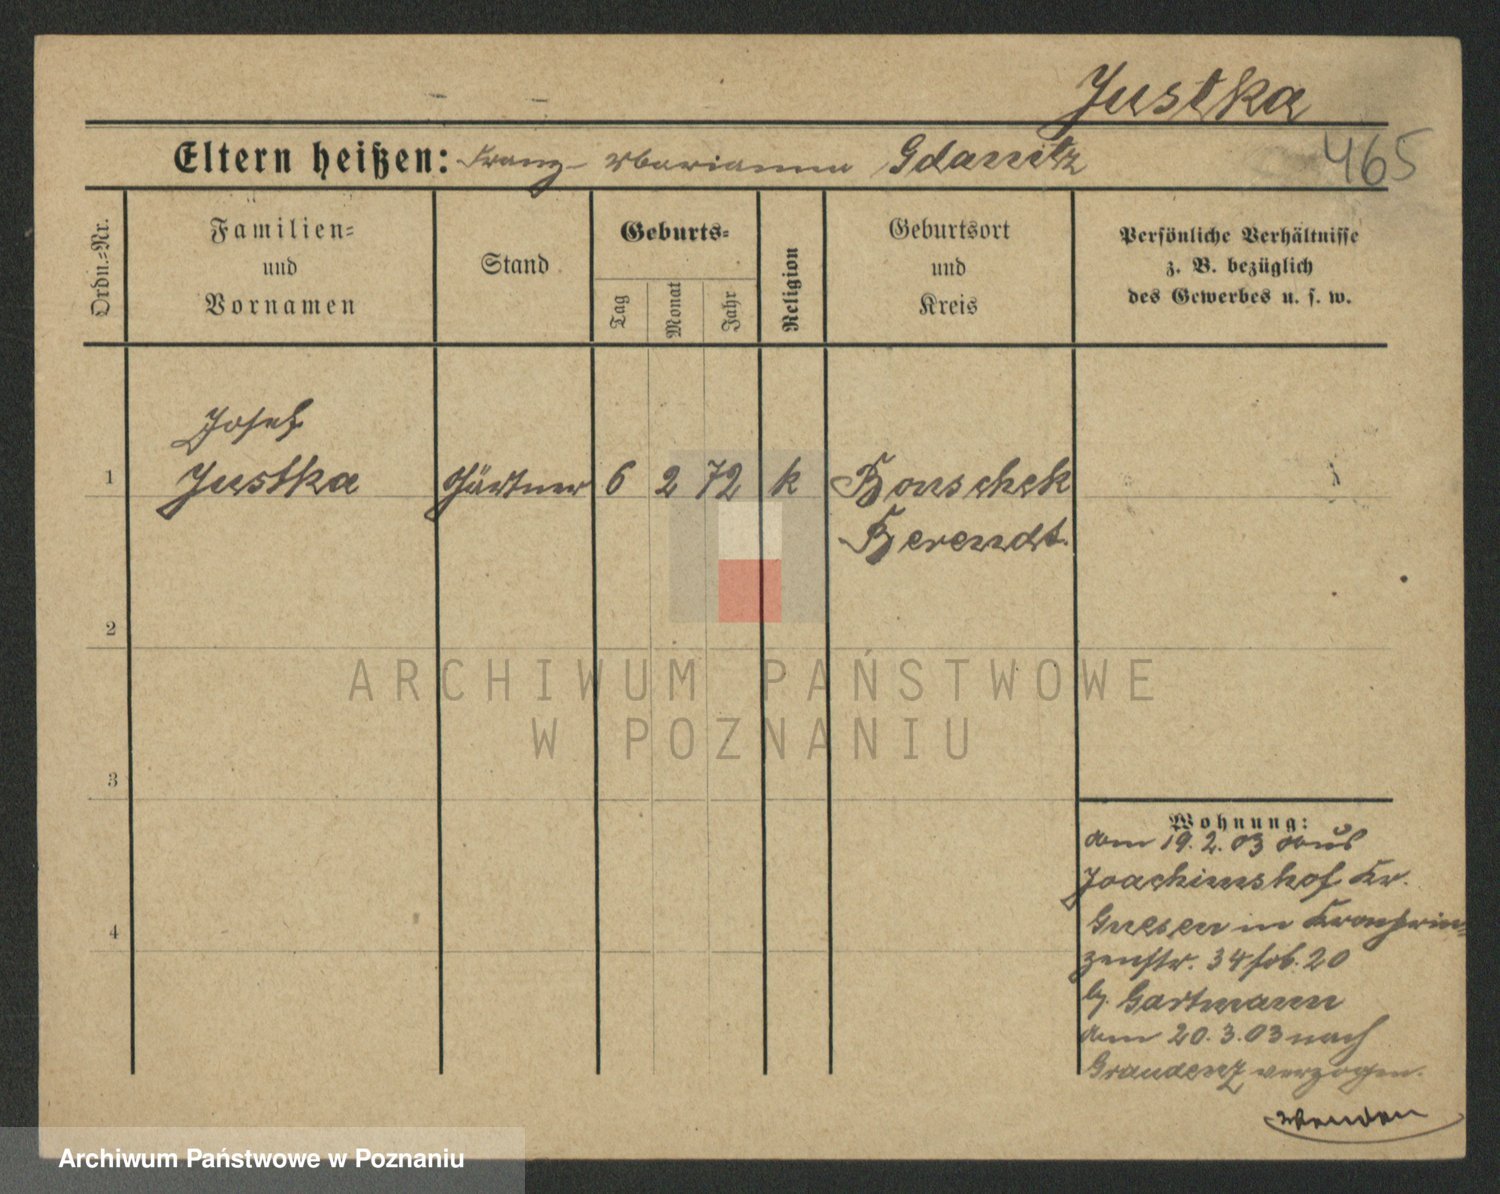 Justka
465
Eltern heißen: Franz - Marianna Gdanitz
Ordn.-Nr.
Familien-
und
Vornamen
Stand
Geburts-
Tag
Monat
Jahr
Religion
Geburtsort
und
Kreis
Persönliche Verhältnisse
z. B. bezüglich
des Gewerbes u. s. w.
Josef
1 Justka Gärtner 6 2 72 k Bonschek
Berendt.
2
3
4
Wohnung:
am 19. 2. 03 aus
Joachimshof Kr.
Gnesen in Kronprin-
zenstr. 34 20
b. Gartmann
am 20. 3. 03 nach
Graudenz verzogen.
ARCHIWUM PAŃSTWOWE
W POZNANIU
Archiwum Państwowe w Poznaniu